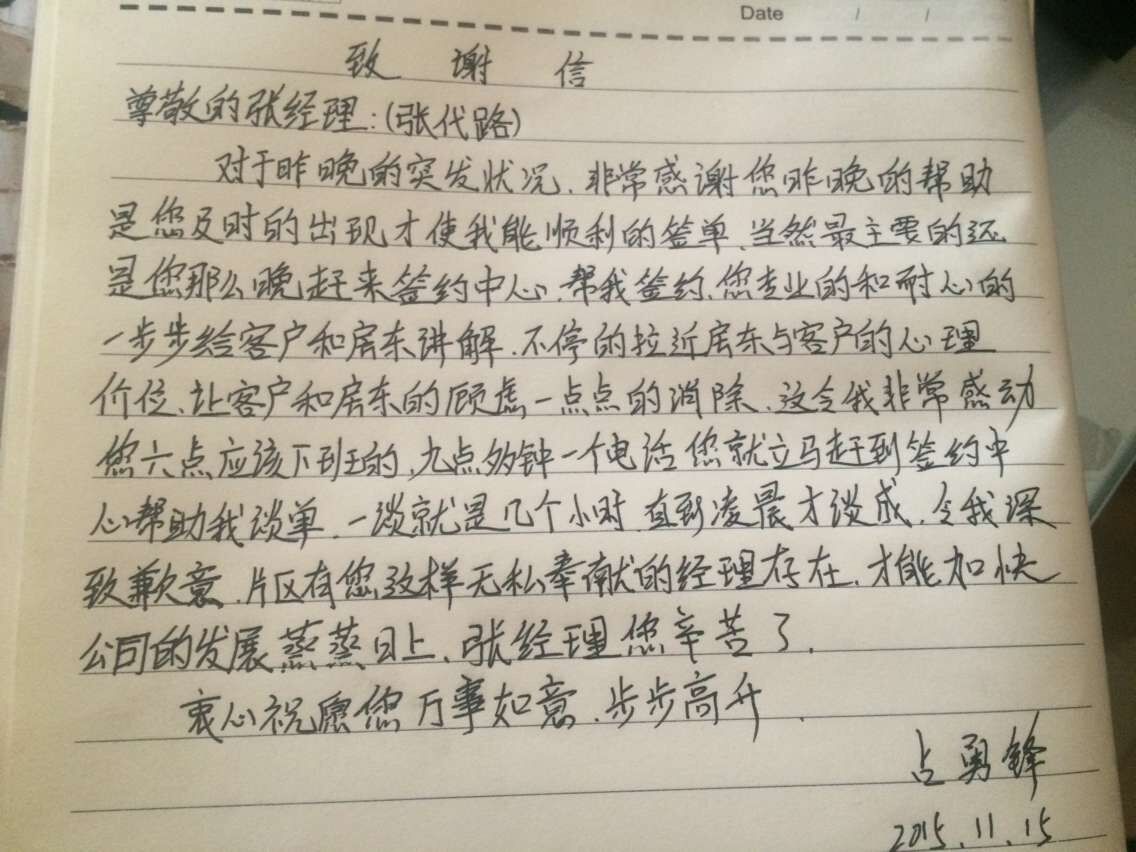 Date / /
致谢信
尊敬的张经理:(张代路)
对于昨晚的突发状况、非常感谢您昨晚的帮助
是您及时的出现才使我能顺利的签单、当然最主要的还
是您那么晚赶来签约中心、帮我签约、您专业的和耐心的
一步步给客户和房东讲解、不停的拉近房东与客户的心理
价位、让客户和房东的顾虑一点点的消除、这令我非常感动
您六点应该下班的、九点多钟一个电话您就立马赶到签约中
心帮助我谈单、一谈就是几个小时、直到凌晨才谈成、令我深
致歉意、片区有您这样无私奉献的经理存在、才能加快
公司的发展蒸蒸日上、张经理您辛苦了、
衷心祝愿您万事如意、步步高升、
占勇锋
2015.11.15